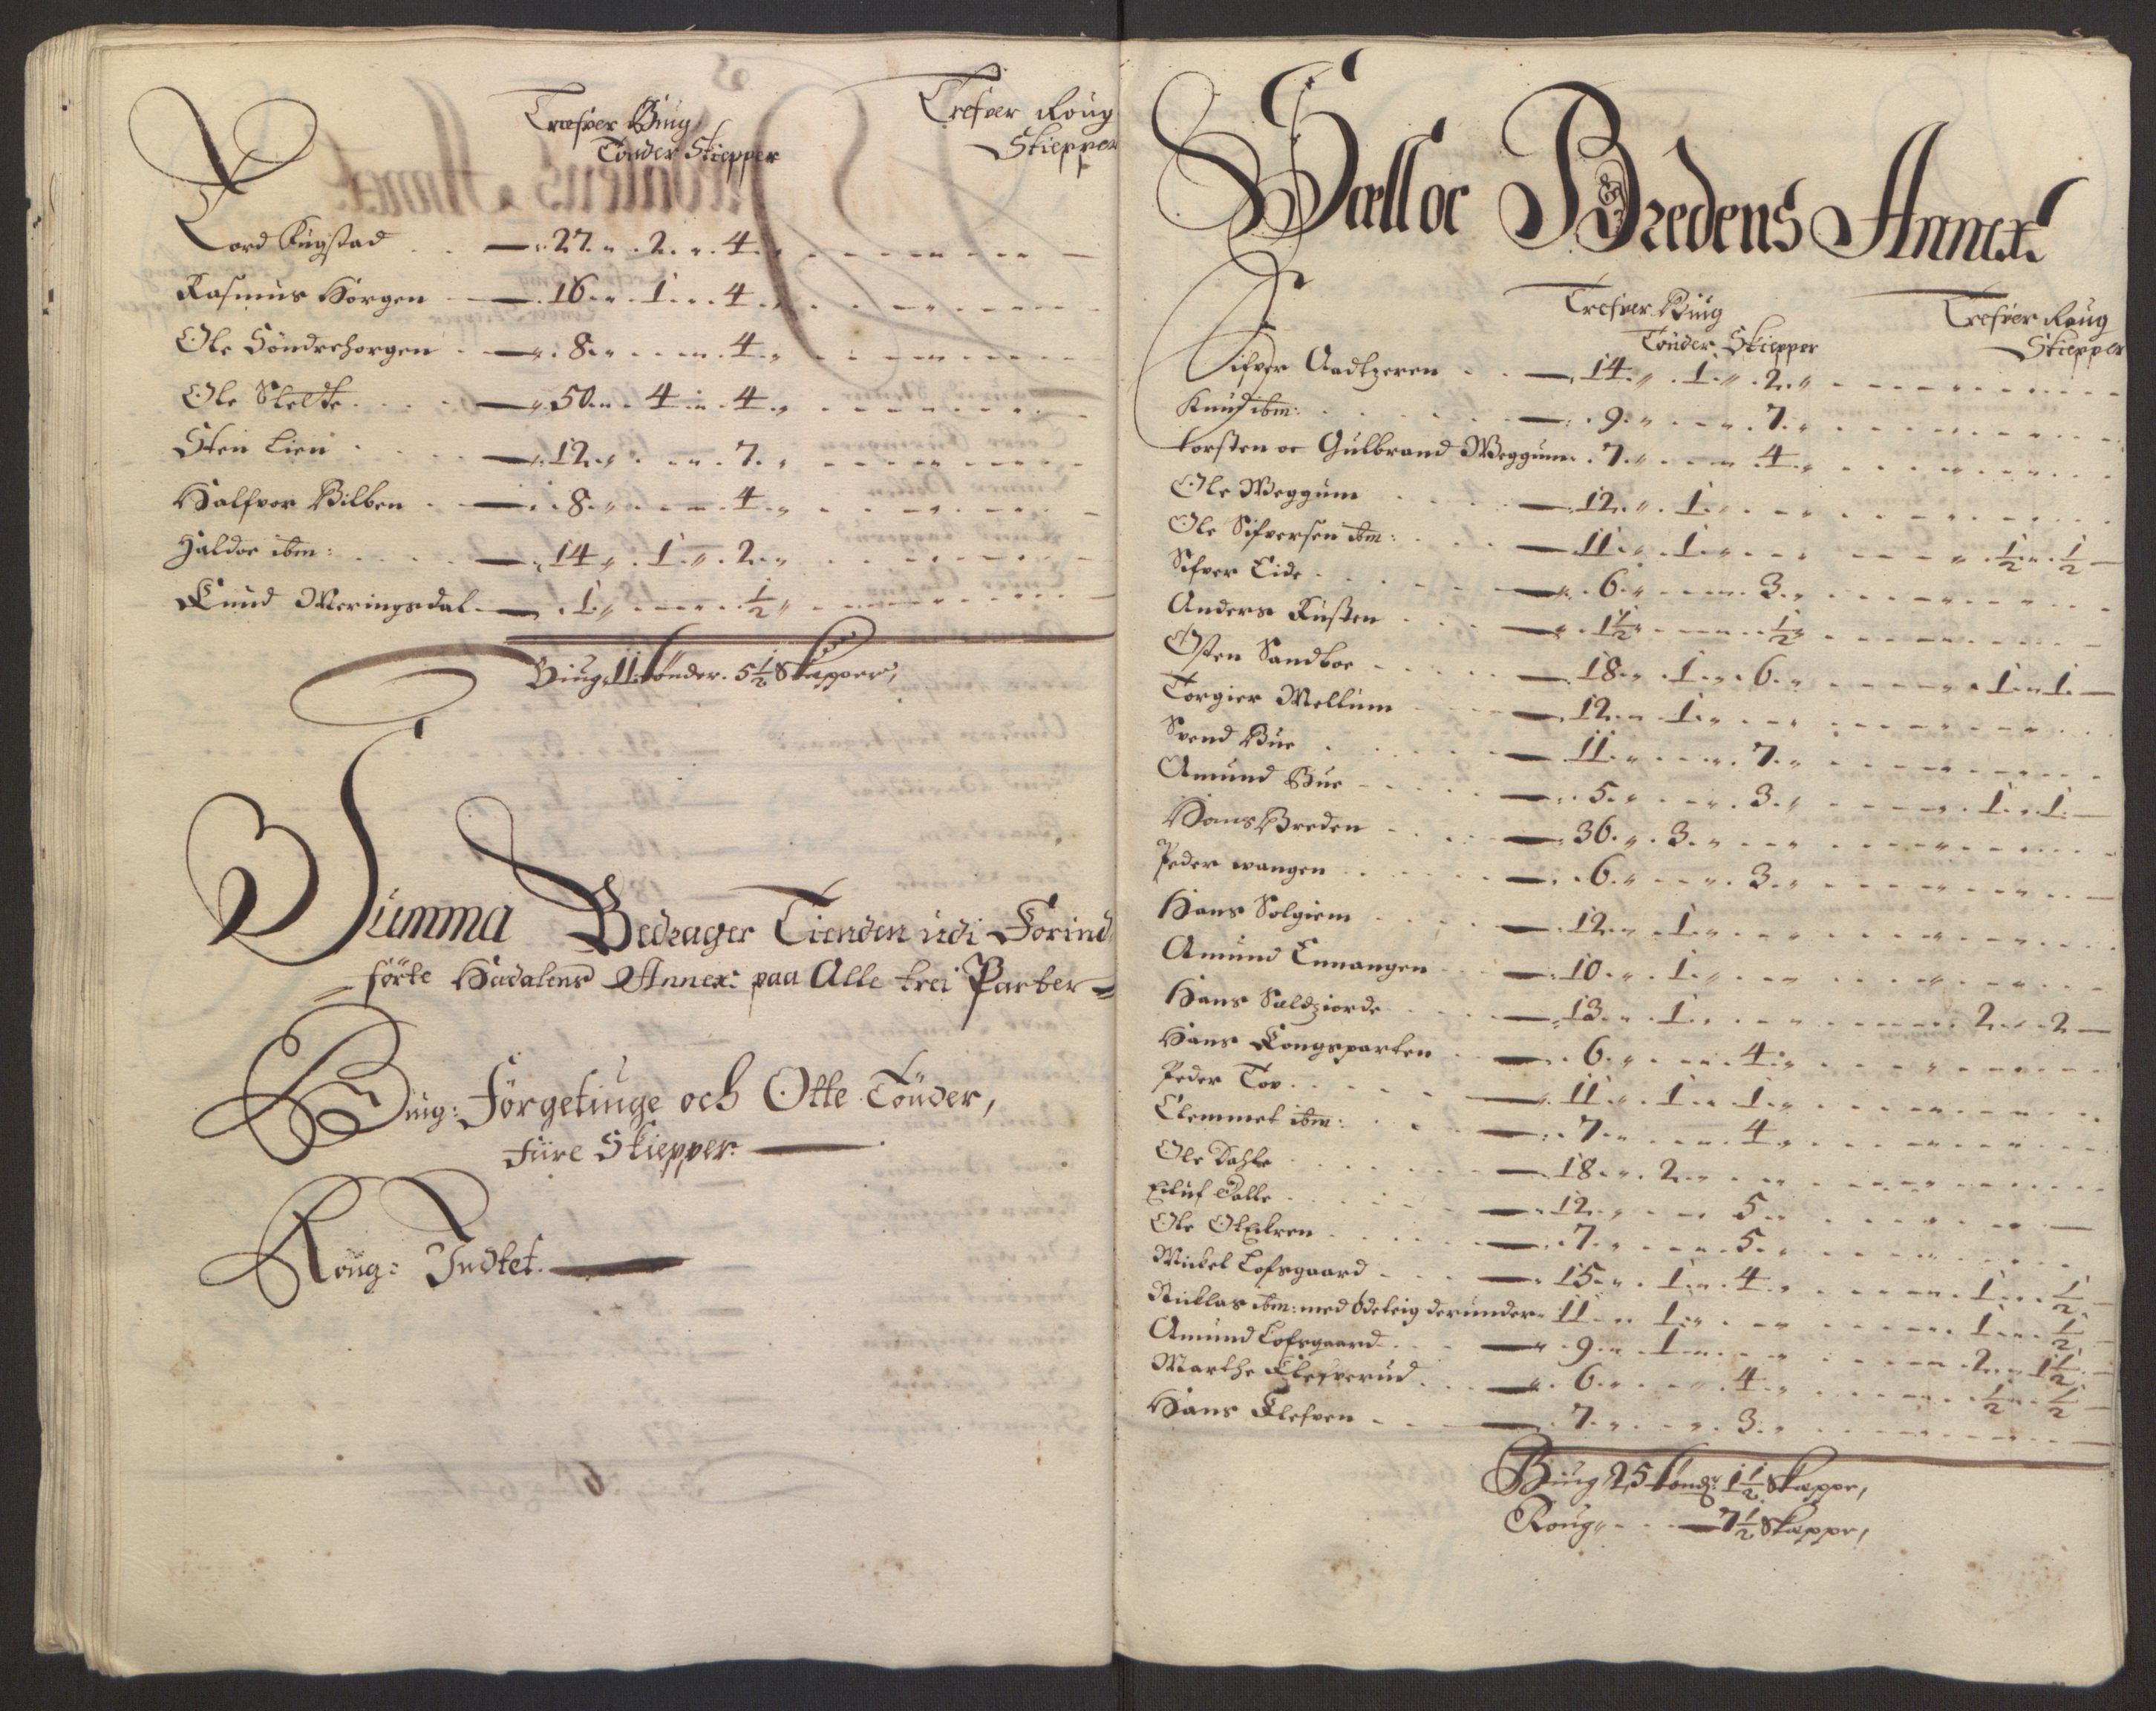 Trefver Biug Trefver Roug
Tönder Skiepper Skiepper
Tord Rugstad 27. 2. 4.
Rasmus Horgen 16. 1. 4.
Ole Söndrehorgen 8. 4.
Ole Skelte 50. 4. 4.
Sten Lien 12. 7.
Halfvor Bilben 8. 4.
Haldor ibm: 14. 1. 2.
Knud Meringsdal 1. ½
Biug 11 tönder. 5½ Skiepper,
Summa Bedrager Tienden udi Forind
förte Hedalens Annex: paa Alle trei Parter
Biug: Förgetiuge och Otte Tönder,
Fiire Skiepper.
Roug: Indtet.
Sell oc Bredens Annex
Trefver Biug Trefver Roug
Tönder Skiepper Skiepper
Sifver 14. 1. 2.
Knud ibm: 9. 7.
torsten oc Gulbrand Weggum 7. 4.
Ole Weggum 12. 1.
Ole Sifversen ibm: 11. 1. ½. ½
Sifver Eide 6. 3.
Anders Rusten 1½ ½
Osten Sandboe 18. 1. 6. 1. 1.
Torgier Mellum 12. 1.
Svend Bue 11. 7.
Amund Bue 5. 3. 1. 1.
Hans Breden 36. 3.
Peder wangen 6. 3.
Hans Solgiem 12. 1.
Amund Ennangen 10. 1.
Hans Saldziorde 13. 1. 2. 2
Hans Kongsparten 6. 4.
Peder Tov 11. 1. 1.
Clemmet ibm: 7. 4
Ole Dahle 18. 2.
Eiluf Dalle 12. 5
Ole 7. 5.
Mickel Lofsgaard 15. 1. 4. 1. ½
Nicklas ibm: med ödeteig derunder 11 1. 1. ½
Amund Lofsgaard 9. 1 2. 1½
Marthe Klefverud 6. 4. ½. ½
Hans Klefven 7. 3.
Biug 25 tönd: 1½ Skieppe,
Roug 7½ Skieppe,